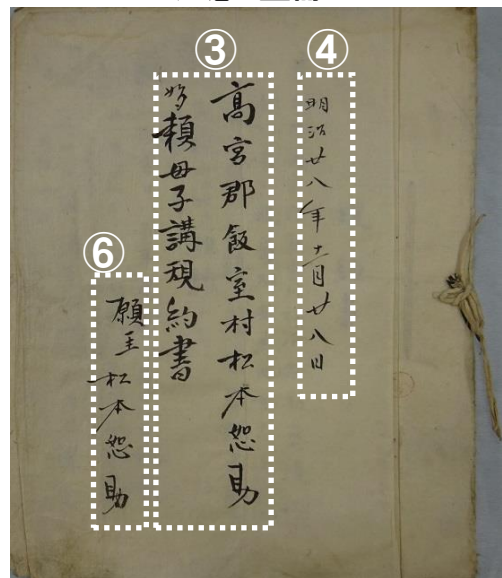 ④
明治廿八年十一月廿八日
③
髙宮郡飯室村松本恕助
好頼母子講規約書
⑥
願主松本恕助